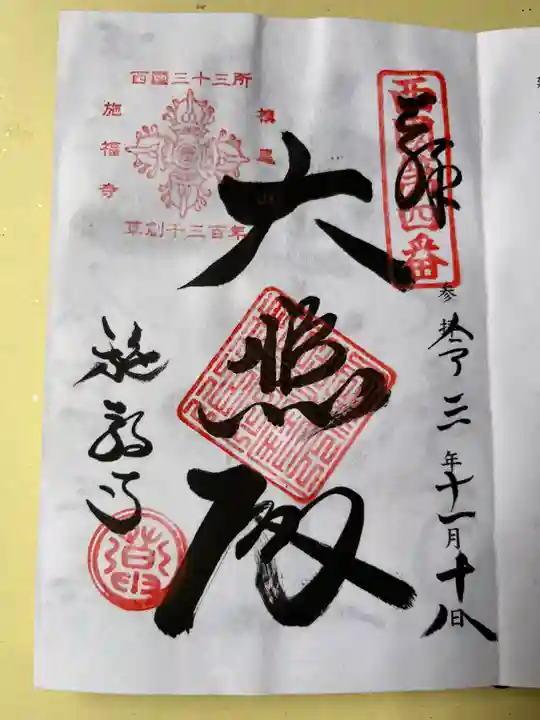 西国第四番
奉拝
参拝 令和三年十一月十八日
大悲殿
西國三十三所
槇尾山
施福寺
草創千三百年
施福寺